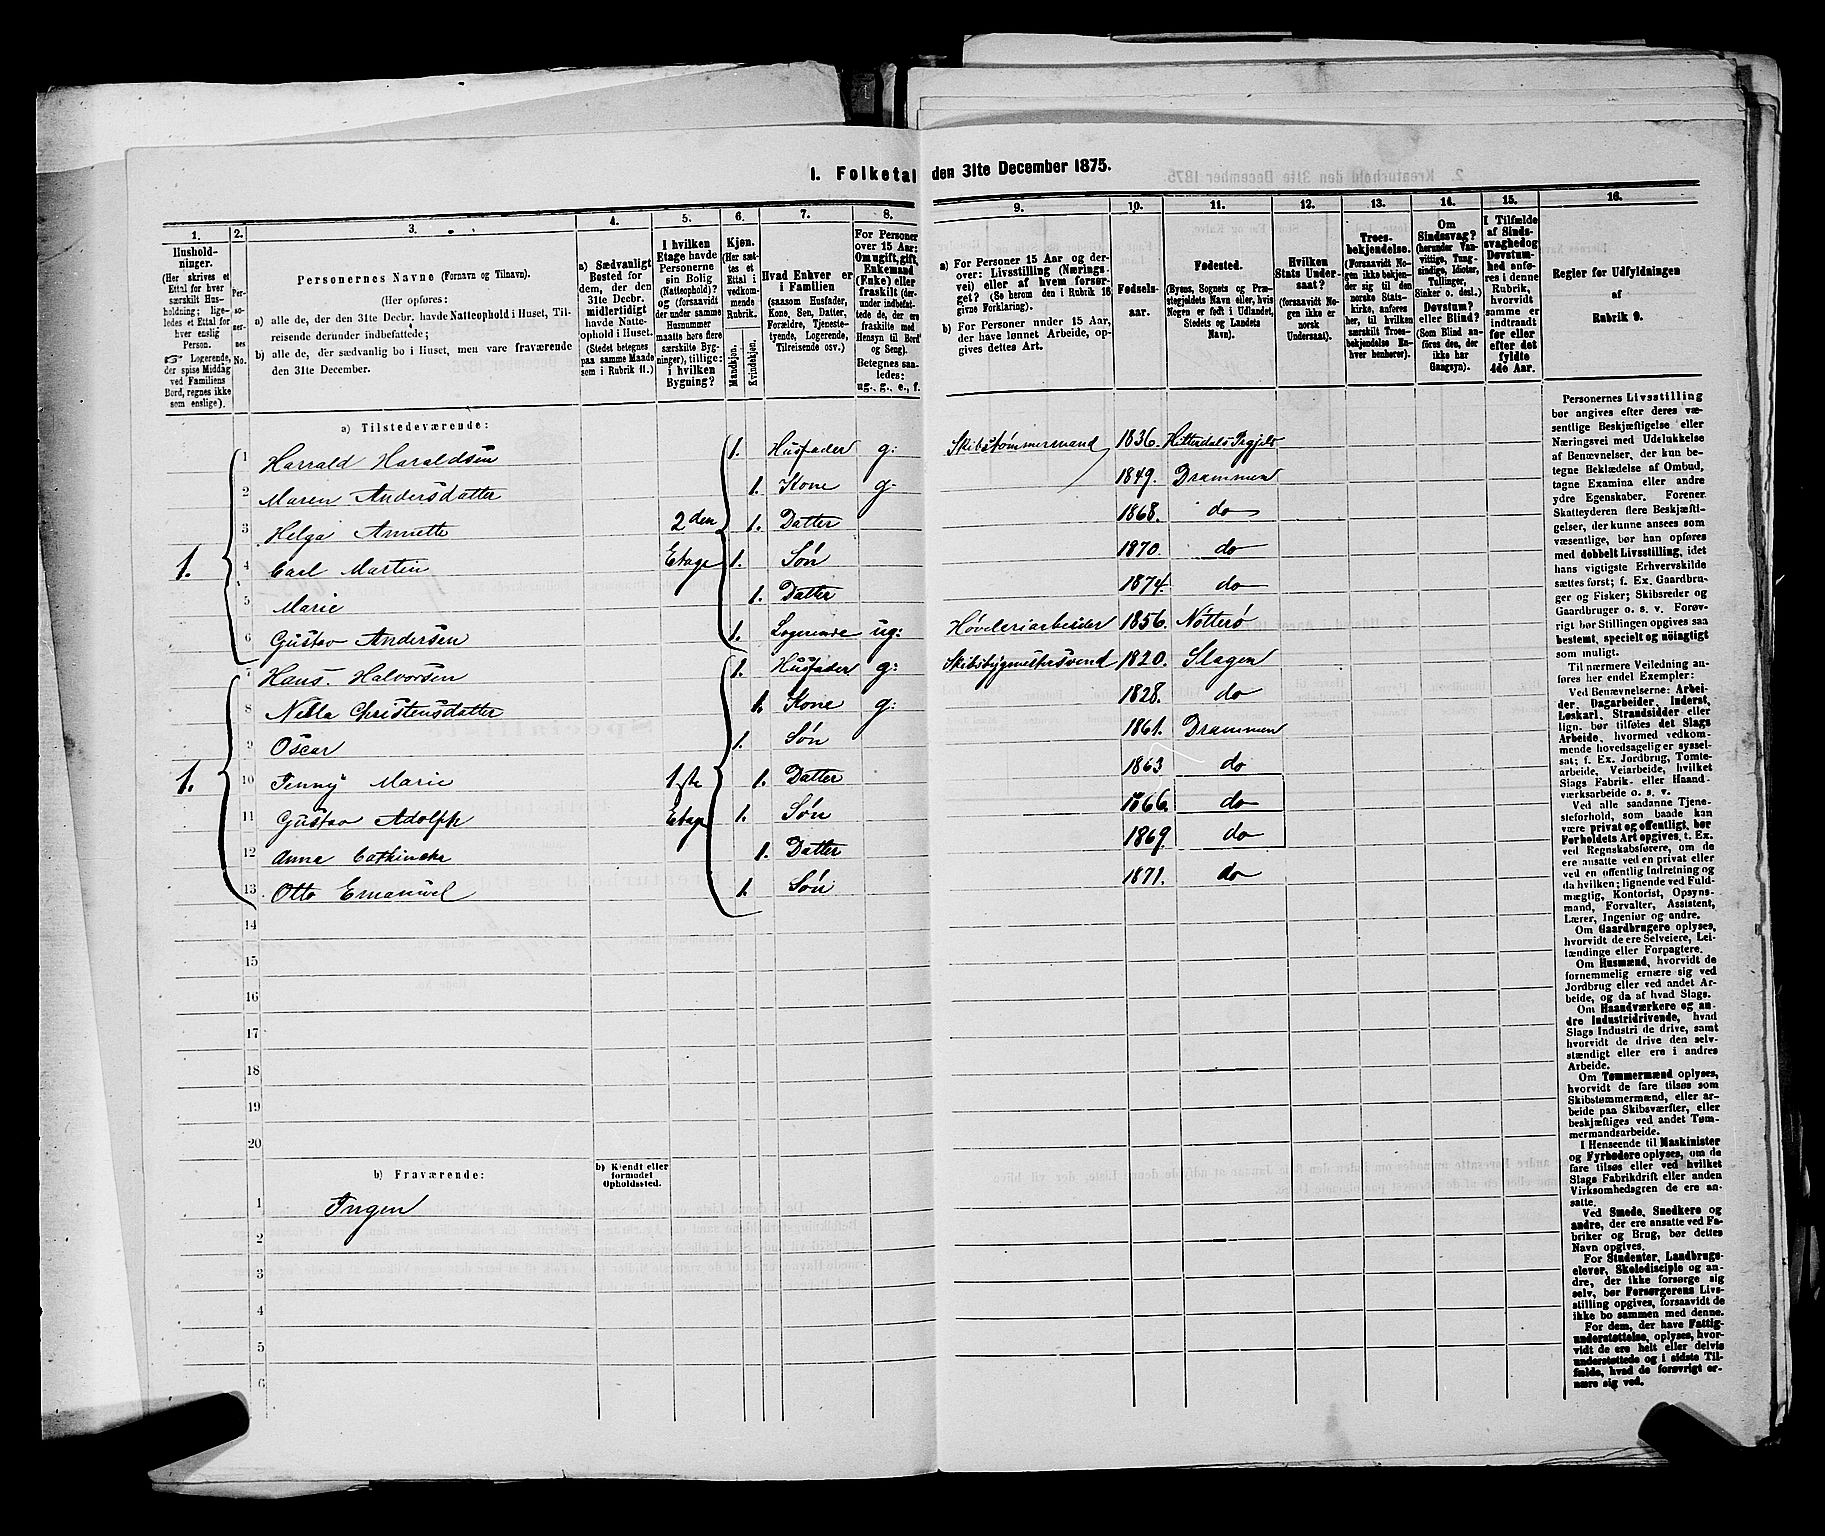 1. Folketal den 31te December 1875.
1. 2. 3. 4. 5. 6. 7. 8. 9. 10. 11. 12. 13. 14. 15. 16.
Husholdninger.
(Her skrives et
Ettal for hver
særskilt Husholdning;
ligeledes et Ettal for
hver enslig
Person.
☞ Logerende,
der spise Middag
ved Familiens
Bord, regnes ikke
som enslige).
Personernes No.
Personernes Navne (Fornavn og Tilnavn).
(Her opføres:
a) alle de, der den 31te Decbr. havde Natteophold i Huset, Tilreisende derunder indbefattede;
b) alle de, der sædvanlig bo i Huset, men vare fraværende
den 31te December.
a) Sædvanligt
Bosted for
dem, der den
31te Decbr.
midlertidigt
havde Natteophold i Huset.
(Stedet betegnes
paa samme Maade
som i Rubrik 11.)
I hvilken
Etage havde
Personerne
sin Bolig
(Natteophold)?
og (forsaavidt
der under samme
Husnummer
maatte høre flere
særskilte Bygninger), tillige:
i hvilken
Bygning?
Kjøn.
(Her sættes et
Ettal i
vedkommende
Rubrik.
Mandkjøn.
Kvindekjøn.
Hvad Enhver er
i Familien
(saasom Husfader,
Kone, Søn, Datter,
Forældre, Tjenestetyende, Logerende,
Tilreisende osv.)
For Personer
over 15 Aar:
Om ugift, gift,
Enkemand
(Enke) eller
fraskilt (derunder indbefattede, de, der ere
fraskilte med
Hensyn til Bord
og Seng).
Betegnes saaledes:
ug., g., e., f.
a) For Personer 15 Aar og derover: Livsstilling (Næringsvei) eller af hvem forsørget? (Se herom den i Rubrik 16
givne Forklaring).
b) For Personer under 15 Aar,
der have lønnet Arbeide, opgives dettes Art.
Fødselsaar.
Fødested.
(Byens, Sognets og Præstegjeldets Navn eller, hvis
Nogen er født i Udlandet,
Stedets og Landets
Navn).
Hvilken
Stats Undersaat?
(forsaavidt Nogen ikke er
norsk
Undersaat).
Troesbekjendelse.
(Forsaavidt Nogen ikke bekjender sig til den
norske Statskirke, anføres
her, til hvilket
særskilt Troesbekjendelse Enhver henhører).
Om
Sindssvag?
(herunder Vanvittige, Tungsindige, Idioter,
Tullinger,
Sinker o. desl.)
Døvstum?
eller Blind?
(Som Blind anføres de, der
ikke har
Gangsyn).
I Tilfælde
af Sindssvaghed og
Døvstumhed anføres i denne
Rubrik,
hvorvidt
samme er
indtraadt
før eller
efter det
fyldte
4de Aar.
Regler for Udfyldningen
af
Rubrik 9.
a) Tilstedeværende:
1 Harrald Haraldsen 1. Husfader g: Skibstømmermand 1836. Hitterdals Prgjeld
2 Maren Andersdatter 1. Kone g. 1849. Drammen
3 Helga Annette 2den 1. Datter 1868. do
1. 4 Carl Martin Etage 1. Søn 1870. do
5 Marie 1. Datter 1874. do
6 Gustav Andersen 1. Logerende ug: Høvleriarbeider 1856. Nötterö
7 Hans. Halvorsen 1. Husfader g: Skibsbygmestersvend 1820. Slagen
8 Nella Christensdatter 1. Kone g: 1828. do
9 Oscar 1. Søn 1861. Drammen
1. 10 Jenny Marie 1ste 1. Datter 1863 do
11 Gustav Adolph Etage 1. Søn 1866. do
12 Anna Cathincka 1. Datter 1869. do
13 Otto Emanuel 1. Søn 1871. do
14
15
16
17
18
19
20
b) Fraværende:
b) Kjendt eller
formodet
Opholdssted.
1 Ingen
2
3
4
5
6
Personernes Livsstilling
bør angives efter deres væsentlige Beskjæftigelse eller
Næringsvei med Udelukkelse
af Benævnelser, der kun betegne Beklædelse af Ombud,
tagne Examina eller andre
ydre Egenskaber. Forener
Skatteyderen flere Beskjæftigelser, der kunne ansees som
væsentlige, bør han opføres
med dobbelt Livsstilling, idet
hans vigtigste Erhvervskilde
sættes først; f. Ex. Gaardbruger og Fisker; Skibsreder og
Gaardbruger o. s. v. Forøvrigt bør Stillingen opgives saa
bestemt, specielt og nøiagtigt
som muligt.
Til nærmere Veiledning anføres her endel Exempler:
Ved Benævnelserne: Arbeider, Dagarbeider, Inderst,
Løskarl, Strandsidder eller
lign. bør tilføies det Slags
Arbeide, hvormed vedkommende hovedsagelig er sysselsat; f. Ex. Jordbrug, Tomtearbeide, Veiarbeide, hvilket
Slags Fabrik- eller Haandværksarbeide o. s. v.
Ved alle saadanne Tjenesteforhold, som baade kan
være privat og offentligt, bør
Forholdets Art opgives, t. Ex.
ved Regnskabsførere, om de
ere ansatte ved en privat eller
ved en offentlig Indretning og
da hvilken; lignende ved Fuldmægtig, Kontorist, Opsynsmand, Forvalter, Assistent,
Lærer, Ingeniør og andre.
Om Gaardbrugere oplyses,
hvorvidt de ere Selveiere, Leilændinge eller Forpagtere.
Om Husmænd, hvorvidt de
fornemmelig ernære sig ved
Jordbrug eller ved andet Arbeide, og da af hvad Slags.
Om Haandværkere og andre Industridrivende, hvad
Slags Industri de drive, samt
hvorvidt de drive den selvstændigt eller ere i andres
Arbeide.
Om Tømmermænd oplyses,
hvorvidt de fare tilsøs som
Skibstømmermænd, eller arbeide paa Skibsværfter, eller
beskjæftiges ved andet Tømmermandsarbeide.
I Henseende til Maskinister
og Fyrbødere oplyses, om de
fare tilsøs eller ved hvilket
Slags Fabrikdrift eller anden
Virksomhedsgren de ere ansatte.
Ved Smede, Snedkere og
andre, der ere ansatte ved Fabriker og Brug, bør dettes
Navn opgives.
For Studenter, Landbrugselever, Skoledisciple og andre, der ikke forsørge sig
selv, bør Forsørgerens Livsstilling opgives, forsaavidt de
ikke bo sammen med denne.
For dem, der have Fattigunderstøttelse, oplyses, hvorvidt de ere helt eller delvis
understøttede og i sidste Tilfælde, hvad de forøvrigt ernære sig ved.